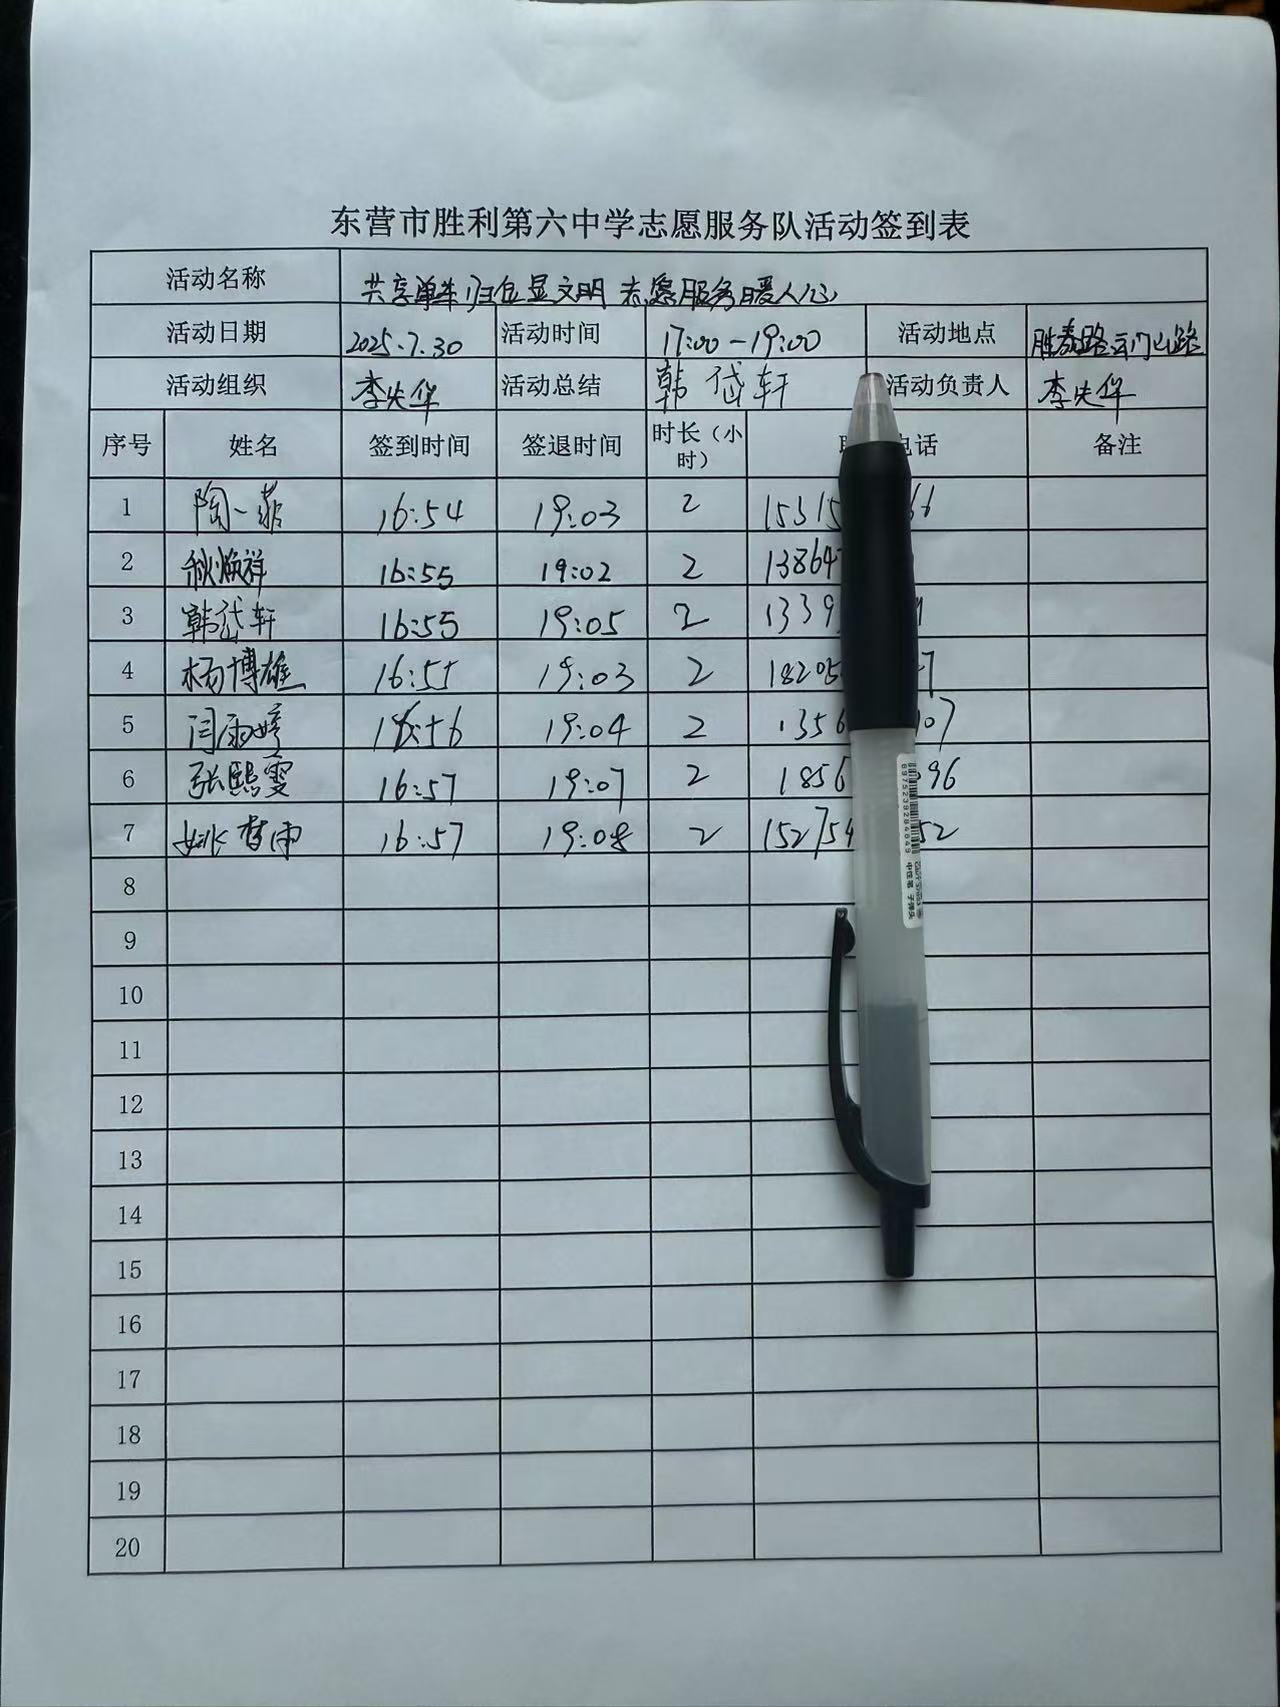 东营市胜利第六中学志愿服务队活动签到表
活动名称 共享单车归位显文明 志愿服务暖人心
活动日期 2025.7.30 活动时间 17:00-19:00 活动地点 胜泰路云门山路
活动组织 李先华 活动总结 韩岱轩 活动负责人 李先华
序号 姓名 签到时间 签退时间 时长（小时） 电话 备注
1 陶一菲 16:54 19:03 2 15315 66
2 秋焕祥 16:55 19:02 2 13864
3 韩岱轩 16:55 19:05 2 1339
4 杨博雄 16:55 19:03 2 18205 7
5 闫雨婷 16:56 19:04 2 1356 07
6 张熙雯 16:57 19:07 2 1856 96
7 姚梦雨 16:57 19:08 2 152754 52
8
9
10
11
12
13
14
15
16
17
18
19
20
6975239284649
中性笔 子弹头